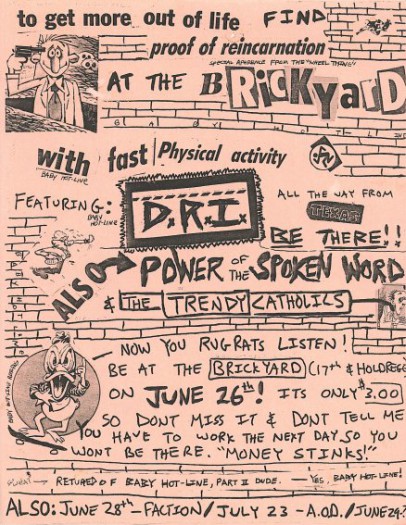 to get more out of life FIND
proof of reincarnation
SPECIAL APPEARANCE FROM THE
AT THE BRICKYARD
with fast Physical activity
BABY HOT-LINE
FEATURING:
BABY HOT-LINE
D.R.I.
ALL THE WAY FROM
TEXAS
BE THERE!!
ALSO
POWER OF THE SPOKEN WORD
& THE TRENDY CATHOLICS
NOW YOU RUGRATS LISTEN!
BE AT THE BRICKYARD (17th & HOLDREGE
ON JUNE 26th! ITS ONLY $3.00
SO DONT MISS IT & DONT TELL ME
YOU HAVE TO WORK THE NEXT DAY, SO YOU
WONT BE THERE. "MONEY STINKS!"
RETURED OF BABY HOT-LINE, PART II DUDE. — YES, BABY HOT-LINE!
ALSO: JUNE 28th - FACTION / JULY 23 - A.O.D. / JUNE 29-?